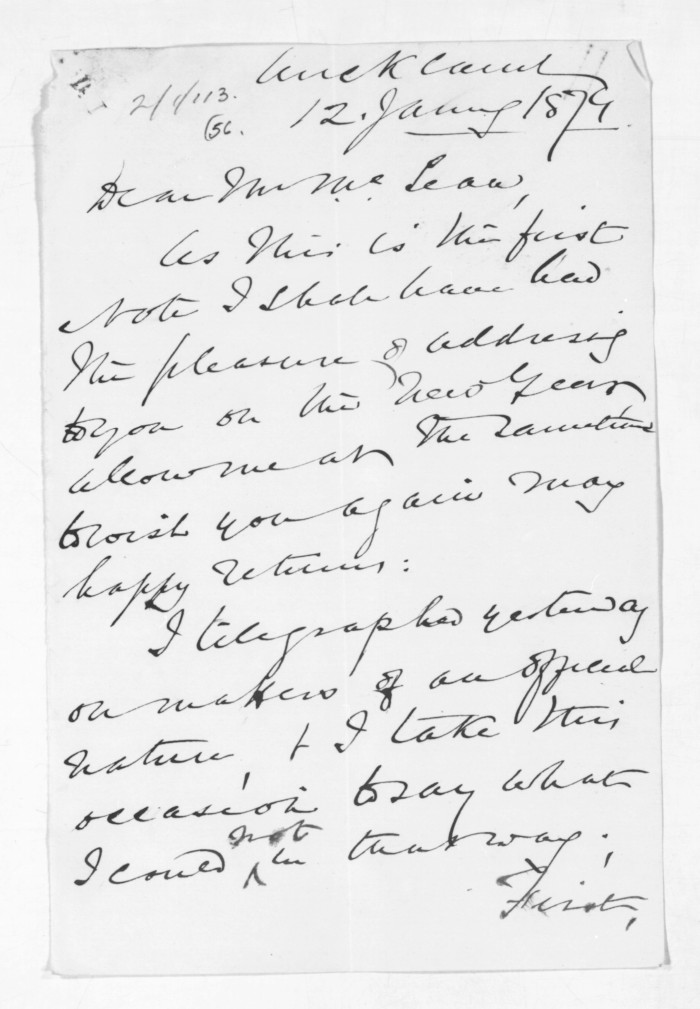 Auckland
2/1/113.
(56.
12. January 1874
Dear Mr McLean,
As this is the first
Note I shall have had
the pleasure of addressing
to you on the New Year
allow me at the same time
to wish you again many
happy returns:
I telegraphed yesterday
on matters of an official
nature, & I take this
occasion to say what
I could not in that way;
First,